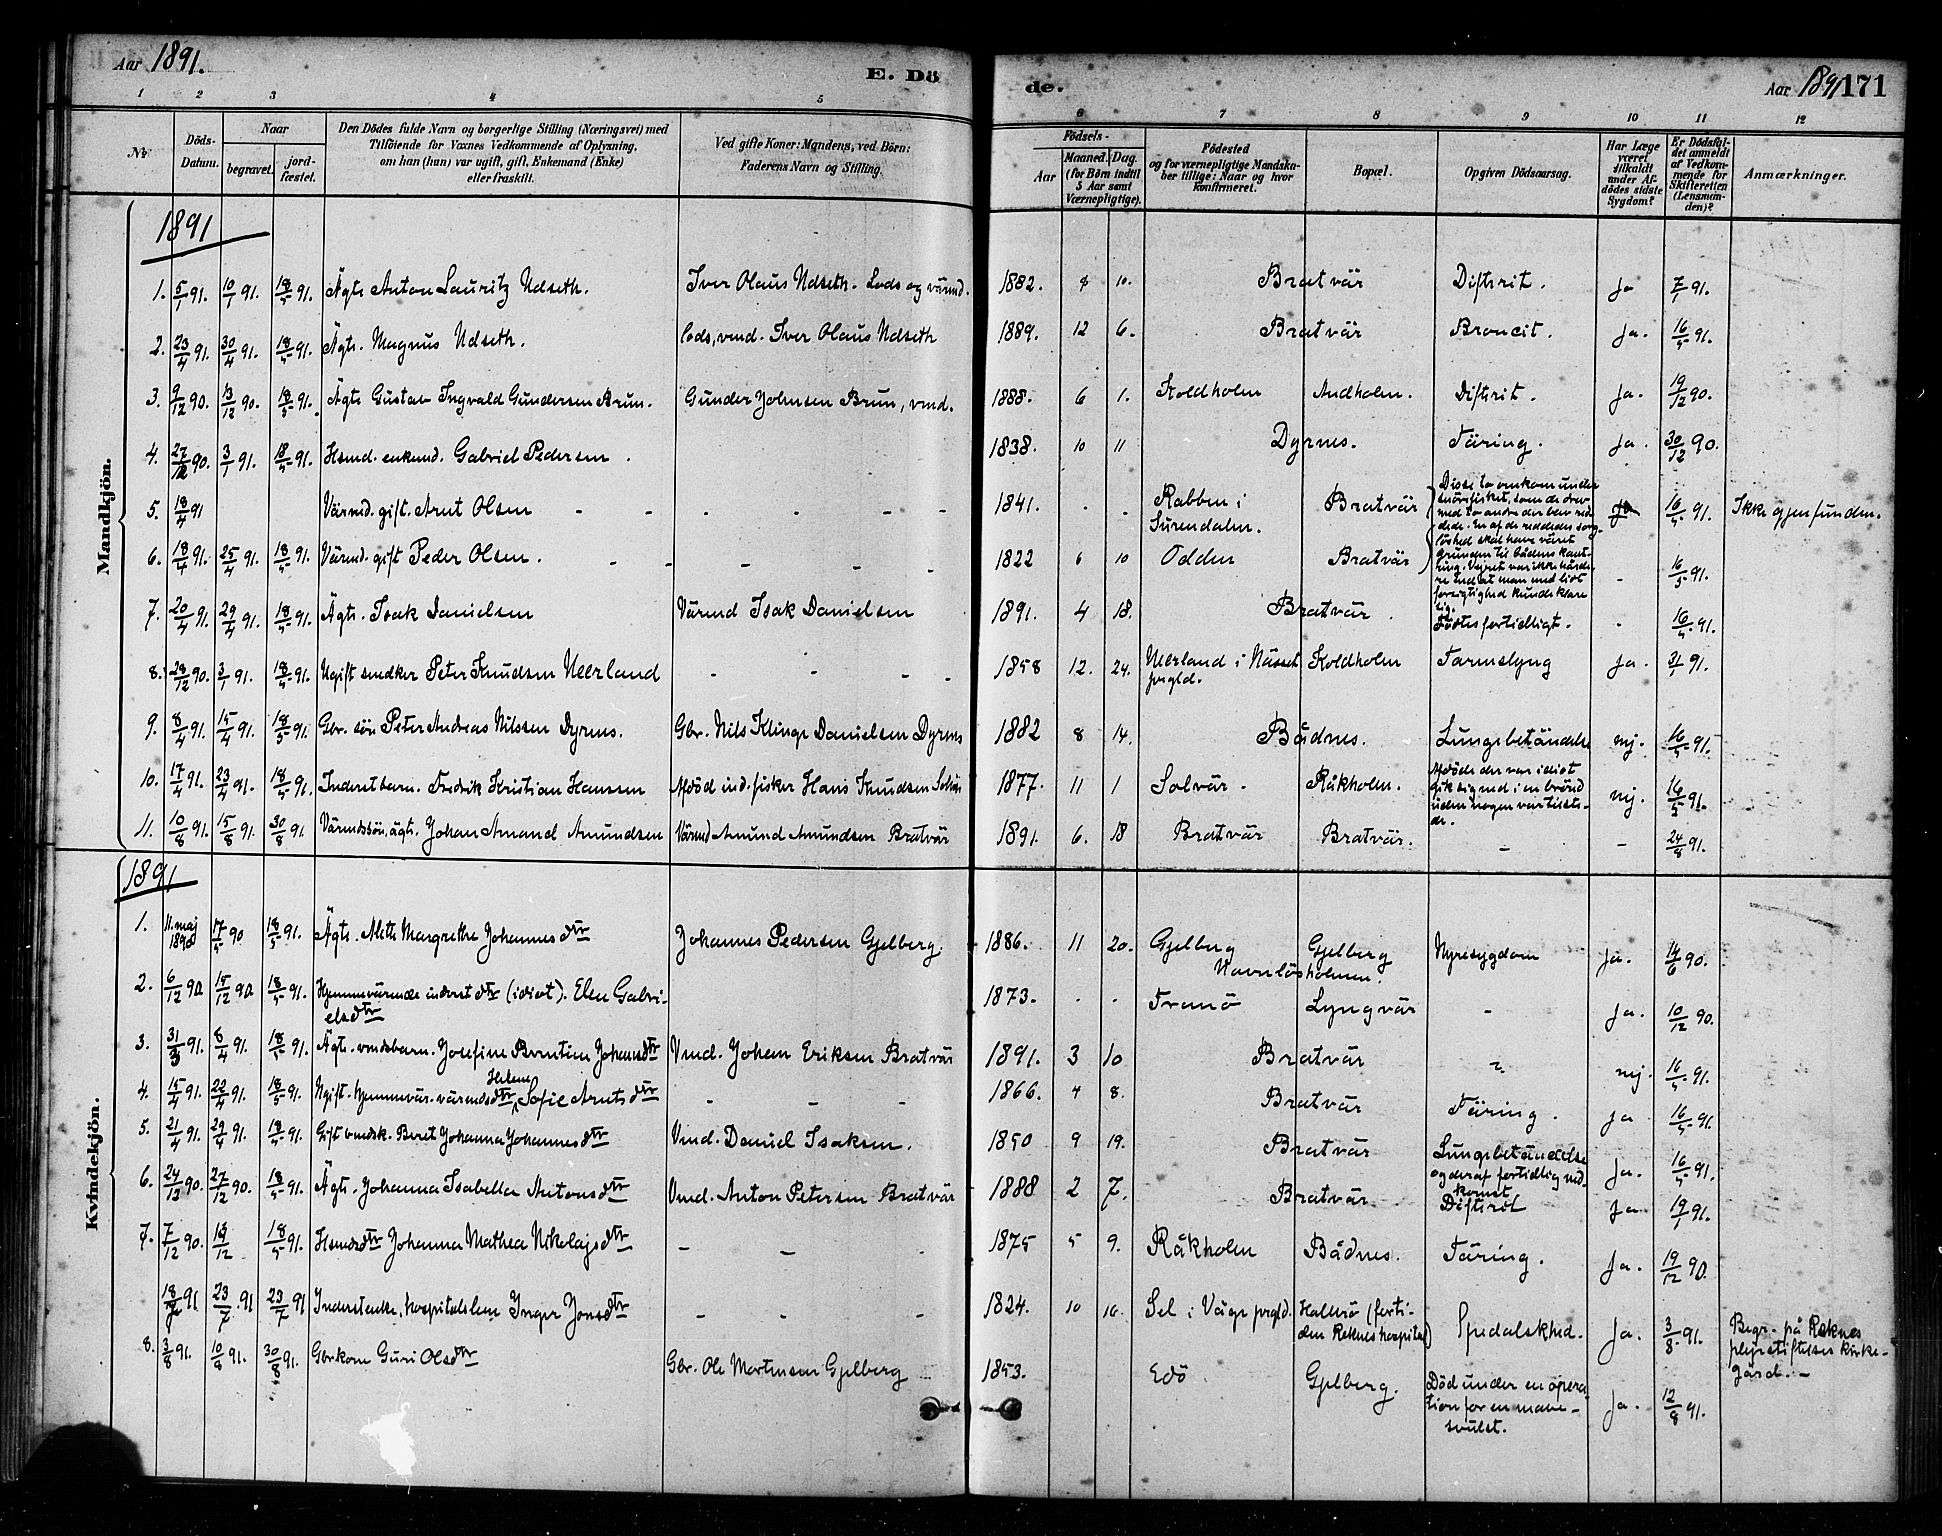 Aar 1891.
E. Dö
de.
Aar 1891 171
1 2 3 4 5
6 7 8 9 10 11 12
Nr.
Döds-Datum.
Naar
begravet.
jord-fæstet.
Den Dödes fulde Navn og borgerlige Stilling (Næringsvei) med
Tilföiende for Voxnes Vedkommende af Oplysning,
om han (hun) var ugift, gift, Enkemand (Enke)
eller fraskilt.
Ved gifte Koner: Mandens, ved Börn:
Faderens Navn og Stilling.
Födsels-
Aar
Maaned. Dag.
(for Börn indtil
5 Aar samt
Værnepligtige).
Födested
og for værnepligtige Mandska-
ber tillige: Naar og hvor
konfirmeret.
Bopæl.
Opgiven Dödsaarsag.
Har Læge
været
tilkaldt
under Af-
dödes sidste
Sygdom?
Er Dödsfal-
det anmeldt
af Vedkom-
mende for
Skifteretten
(Lensman-
den)?
Anmærkninger.
Mandkjön.
1891
1. 5/1 91. 10/1 91. 18/5 91. Ägte Anton Lauritz Udseth. Iver Olaus Udseth. Lods og värmd. 1882. 8 10. Bratvär Difterit. Ja 7/1 91.
2. 23/4 91. 30/4 91. 18/5 91. Ägte. Magnus Udseth. Lods, vmd. Iver Olaus Udseth 1889. 12 6. Bratvär Broncit. Ja. 16/5 91.
3. 9/12 90. 13/12 90. 18/5 91. Ägte Gustav Ingvald Gundersen Brun. Gunder Johnsen Brun, vmd. 1888. 6 1. Koldholm Andholm. Difterit. Ja. 19/12 90.
4. 27/12 90. 3/1 91. 18/5 91. Hsmd. enkemd. Gabriel Pedersen. 1838. 10 11 Dyrnes. Täring. Ja. 30/12 90.
5. 18/4 91 Värmd. gift. Arnt Olsen - - - - - 1841. - - Rabben i Surendalen. Bratvär Disse to omkom under
snörefisket, som de drev
med to andre der blev red-
dede. En af de reddedes sorg-
löshed skal have väret
grunden til bådens kant-
ring. Vejret var ikke hårde-
re end at man med lidt
forsigtighed kunde klare
sig.
16/5 91. Ikke gjenfunden.
6. 18/4 91. 25/4 91. 18/5 91. Värmd. gift Peder Olsen. - - - - 1822 6 10 Odden Bratvär - 16/5 91.
7. 20/4 91. 29/4 91. 18/5 91. Ägte. Isak Danielsen Värmd Isak Danielsen 1891. 4 18. Bratvär. Födtes fortidligt. - 16/5 91.
8. 28/12 90. 3/1 91. 18/5 91. Ugift snedker Peter Knudsen Meerland - - - - 1858 12. 24. Meerland i Nässet prgld. Koldholm Tarmslyng Ja. 3/1 91.
9. 8/4 91. 15/4 91. 18/5 91. Gbr. sön Peter Andreas Nilssen Dyrnes. Gbr. Nils Klinge Danielsen Dyrnes 1882 8 14. Bådnes. Lungebetändelse nej. 16/5 91.
10. 17/4 91. 23/4 91. 18/5 91. Inderst barn. Fredrik Kristian Hanssen Afdöd ind. fisker Hans Knudsen Solvär 1877. 11 1 Solvär. Råkholm. Afdöde der var idiot
gik sig ned i en brönd
uden nogen var tilste-
de.
nej. 16/5 91.
11. 10/8 91. 15/8 91. 30/8 91. Värmdssön, ägte. Johan Amand Amundsen Värmd Amund Amundsen Bratvär 1891. 6. 18 Bratvär Bratvär. - - 24/8 91.
Kvindekjön.
1891
1. 11. maj 1890 17/5 90 18/5 91. Ägte. Alette Margrethe Johannesdtr Johannes Pedersen Gjelberg. 1886. 11 20. Gjelberg Gjelberg Navnlösholmen. Nyresygdom Ja. 14/6 90.
2. 6/12 90 15/12 90 18/5 91. Hjemmevärende inderst dtr (idiot). Elen Gabri-
elsdtr
1873. - - Tranö Lyngvär - Ja. 10/12 90.
3. 31/3 91. 8/4 91. 18/5 91. Ägte. vmdsbarn. Josefine Berntine Johansdtr Vmd. Johan Eriksen Bratvär 1891. 3 10 Bratvär nej. 16/5 91.
4. 15/4 91. 22/4 91. 18/5 91. Ugift. hjemmevär. värmdsdtr, Helene Sofie Arntsdtr - - - 1866. 4 8. Bratvär Täring. Ja 16/5 91.
5. 21/4 91. 29/4 91. 18/5 91. Gift vmdsk. Beret Johanna Johannesdtr Vmd. Daniel Isaksen. 1850 9 19. Bratvär Lungebetändelse
og deraf fortidlig ned-
komst.
Ja. 16/5 91.
6. 24/12 90. 27/12 90. 18/5 91. Ägte. Johanna Isabella Antonsdtr Vmd. Anton Petersen Bratvär 1888 2 7. Bratvär Difterit Ja 19/1 91.
7. 7/12 90. 19/12 18/5 91. Hsmdsdtr Johanna Mathea Nikolajsdtr - - - 1875 5 9. Råkholm Bådnes. Täring. Ja. 19/12 90.
18/7 91. 23/7 91 23/7 91 Inderstenke, hospitalslem Inger Jonsdtr - - - 1824. 10 16. Sel i Våge prgld. Halsö (forti-
den Reknes hospital)
Spedalskhed. Ja. 3/8 91. Begr. på Reknes
plejestiftelses kirke-
gård.
8. 3/8 91. 10/8 91. 30/8 91. Gbrkone Guri Olsdtr Gbr. Ole Mortensen Gjelberg 1853. Edö Gjelberg. Död under en opera-
tion for en mave-
svulst.
Ja. 12/8 91.